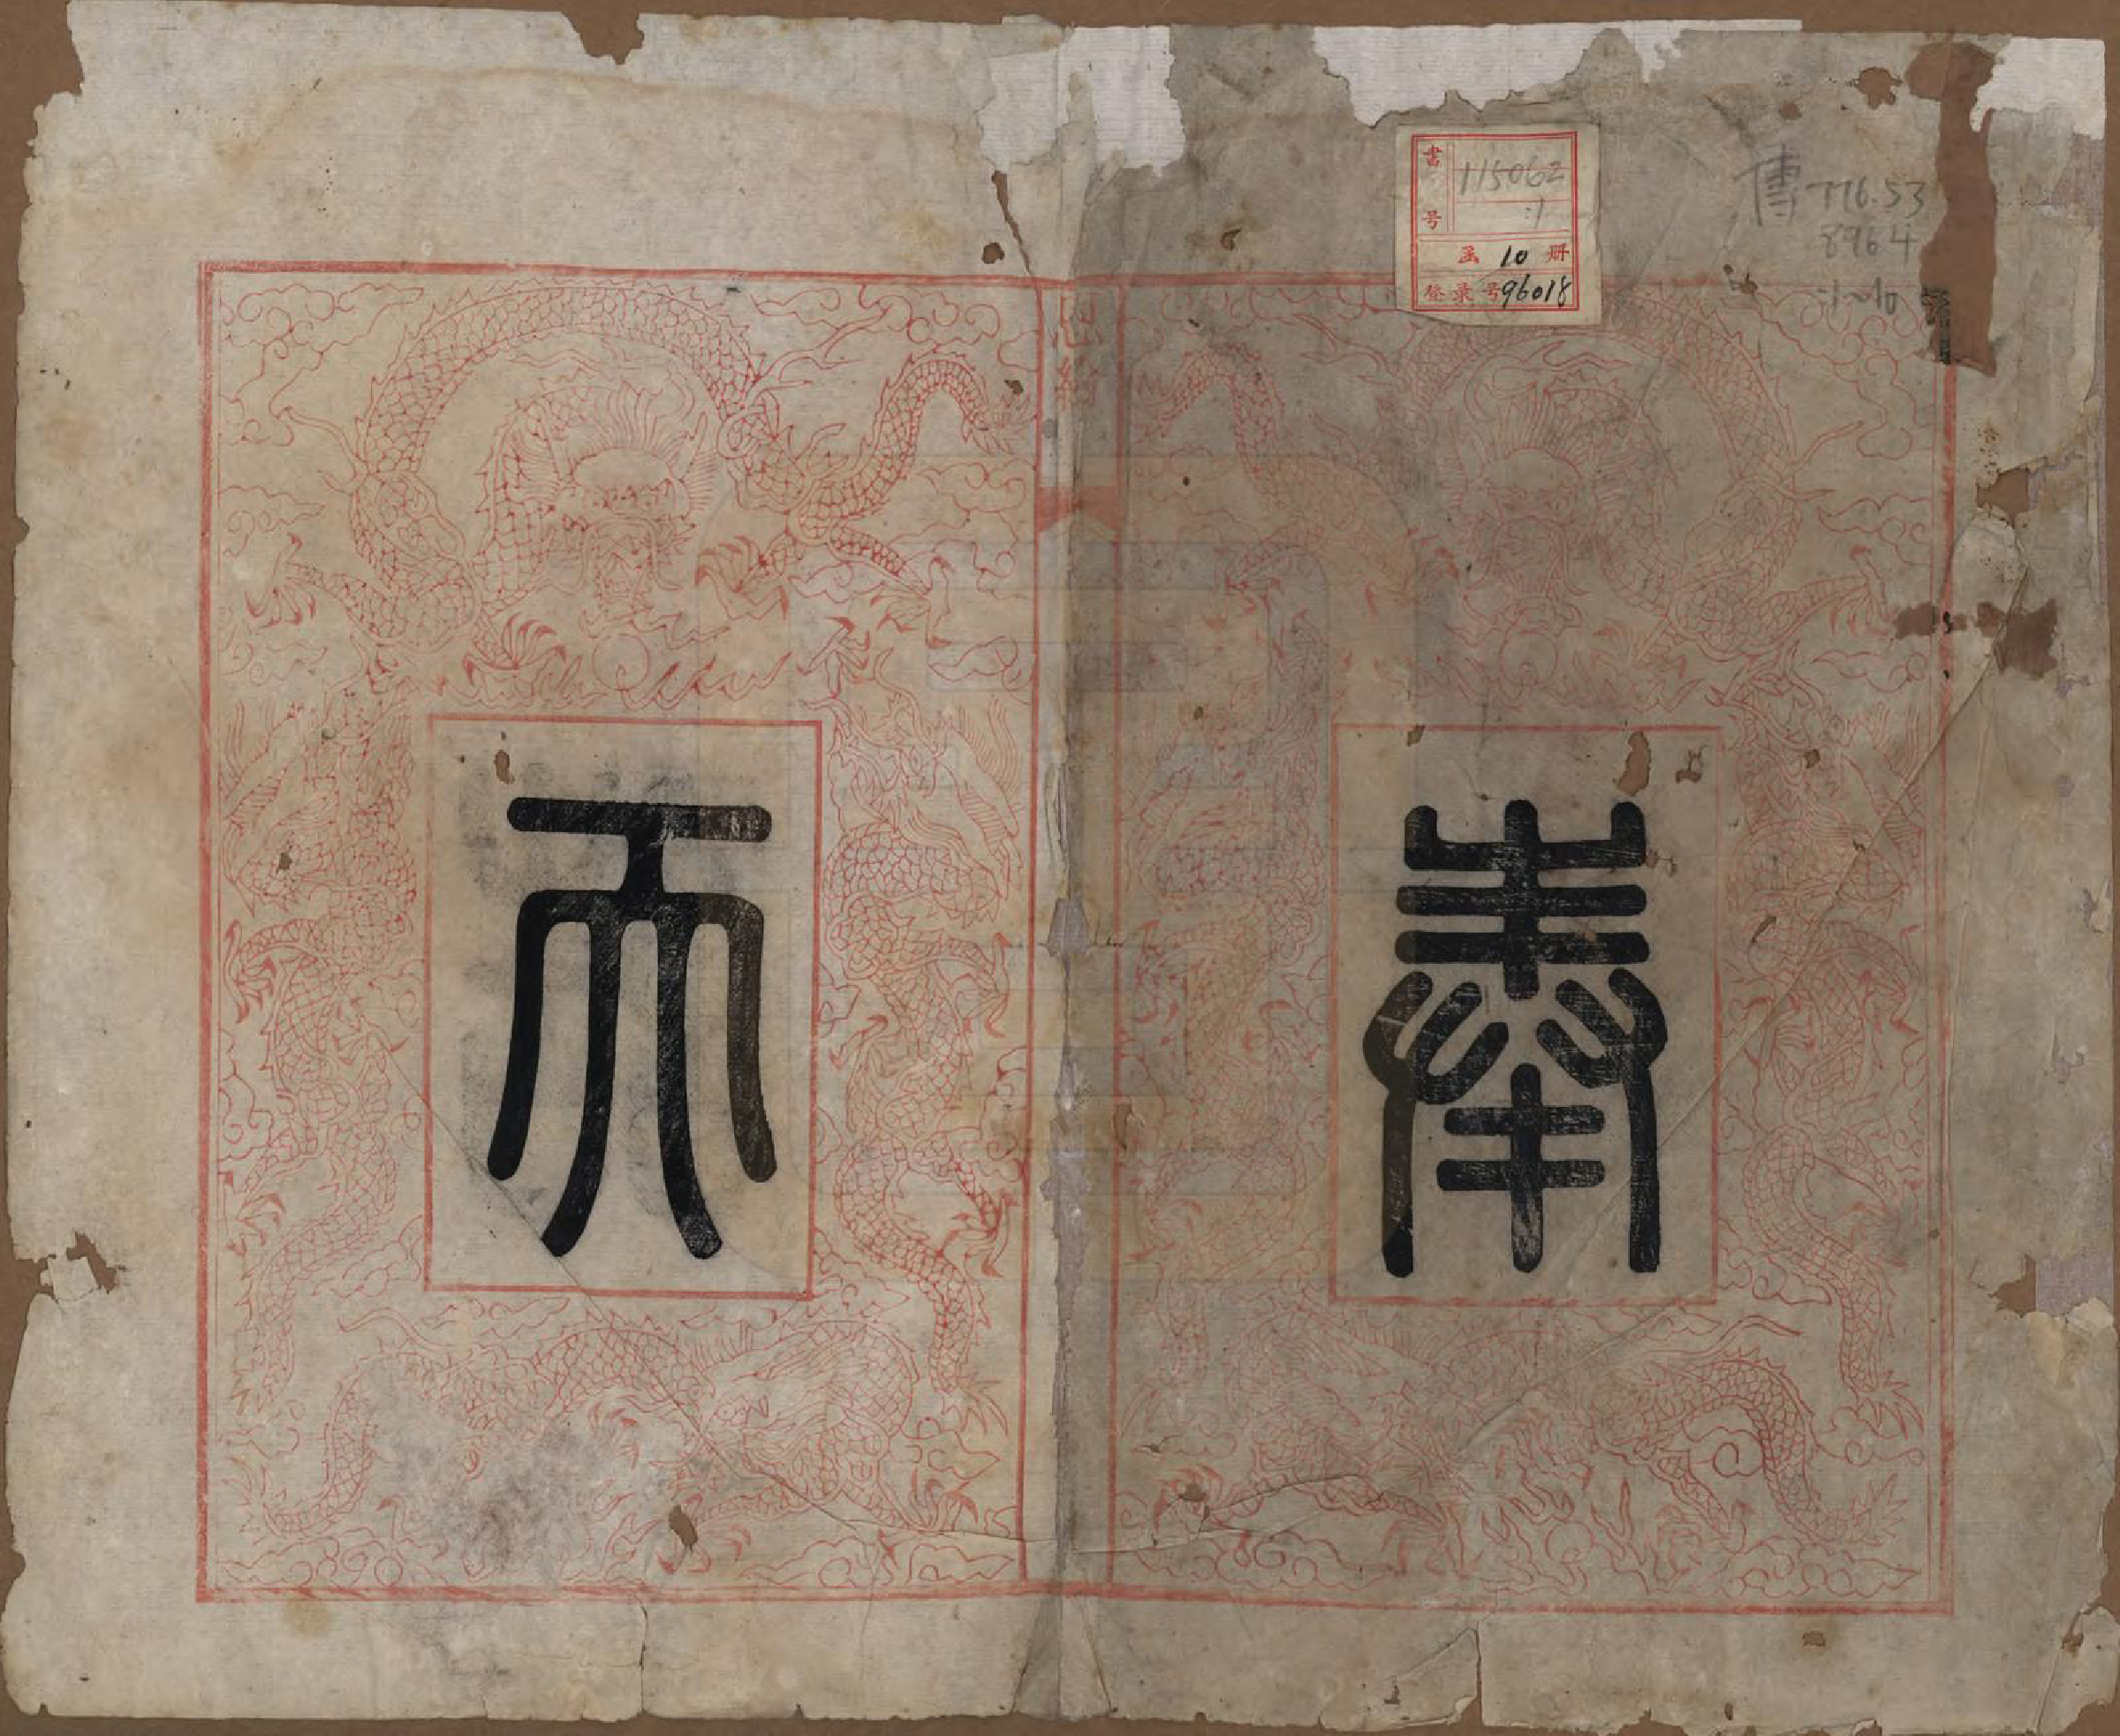 奉
天
書号 115062
:1
函 10 册
登录号 96018
傳 776.53
8964
:1~10